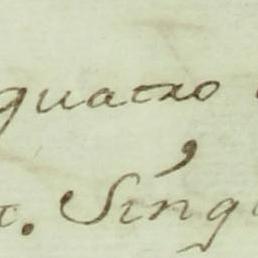 quatro
Sing